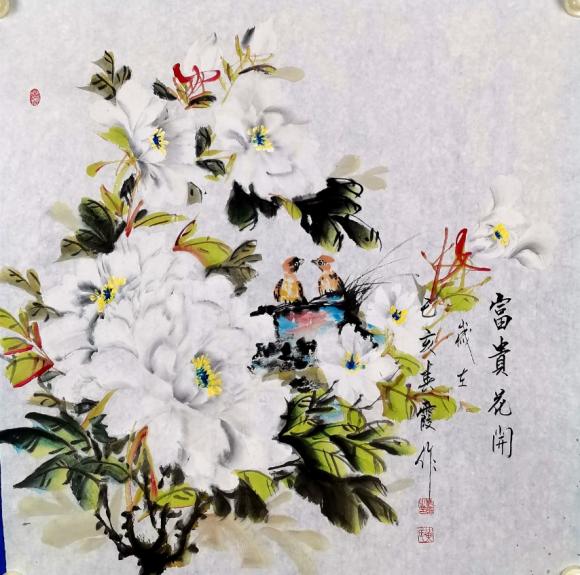 富貴花開
歲在
己亥春霞作